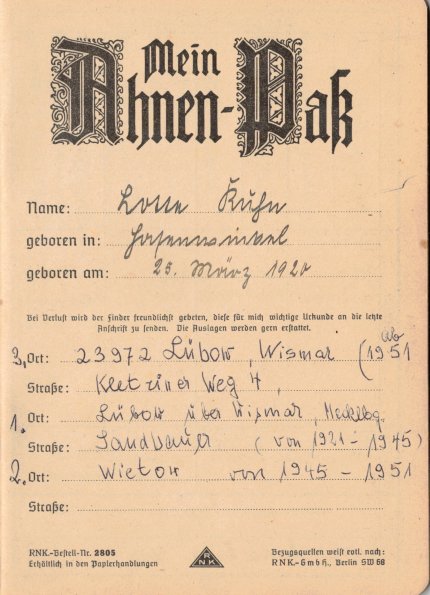 Mein
Ahnen-Paß
Name: Lotte Kuhn
geboren in: Hasenwinkel
geboren am: 25. März 1920
Bei Verlust wird der Finder freundlichst gebeten, diese für mich wichtige Urkunde an die letzte
Anschrift zu senden. Die Auslagen werden gern erstattet.
3. Ort: 23972 Lübow, Wismar (ab 1951
Straße: Kletziner Weg 4,
1. Ort: Lübow über Wismar, Mecklbg.
Straße: Sandbauer (von 1921-1945)
2. Ort: Wietow von 1945 - 1951
Straße:
RNK.-Bestell-Nr. 2805
Erhältlich in den Papierhandlungen
RNK
Bezugsquellen weist evtl. nach:
RNK.-GmbH., Berlin SW 68